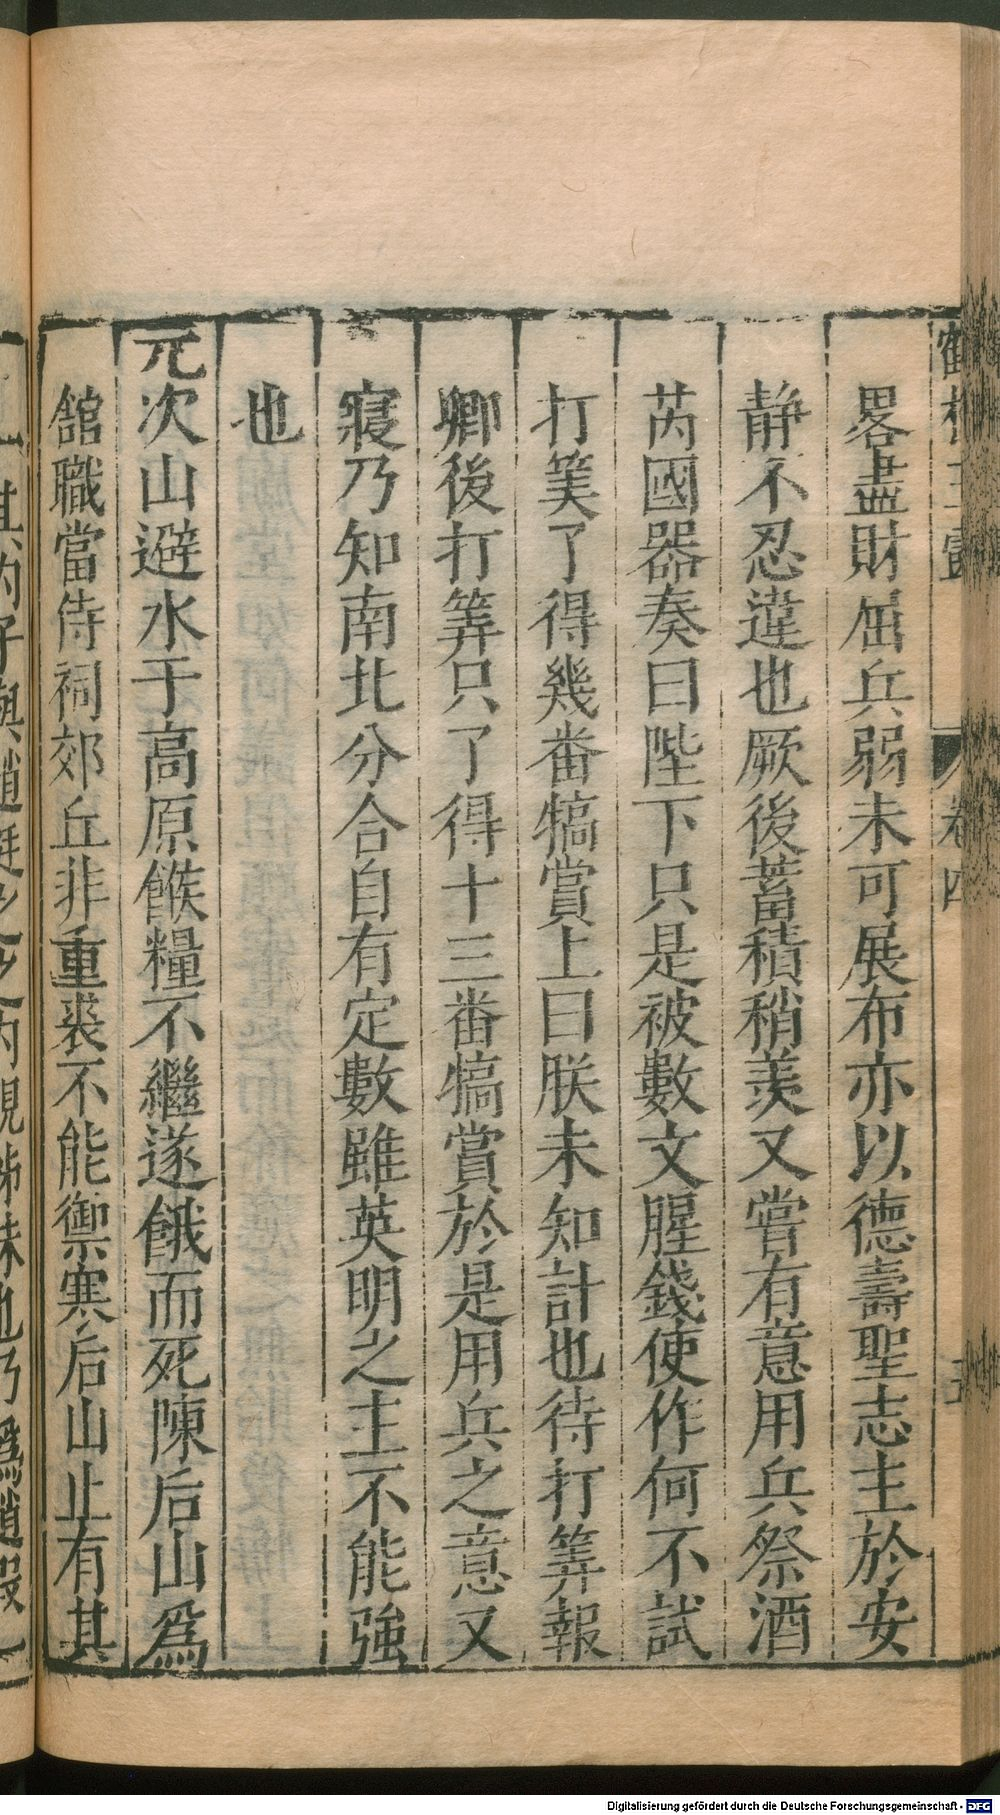 鶴林玉露 卷四
畧盡財屈兵弱未可展布亦以德壽聖志主於安
靜不忍違也厥後蓄積稍羨又嘗有意用兵祭酒
芮國器奏曰陛下只是被數文腥錢使作何不試
打筭了得幾番犒賞上曰朕未知計也待打筭報
卿後打筭只了得十三番犒賞於是用兵之意又
寢乃知南北分合自有定數雖英明之主不能強
也
元次山避水于高原餱糧不繼遂餓而死陳后山爲
舘職當侍祠郊丘非重裘不能禦寒后山止有其
Digitalisierung gefördert durch die Deutsche Forschungsgemeinschaft - DFG